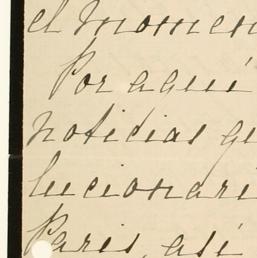 el momen
Por aquí
noticias qu
lucionari
Paris, así